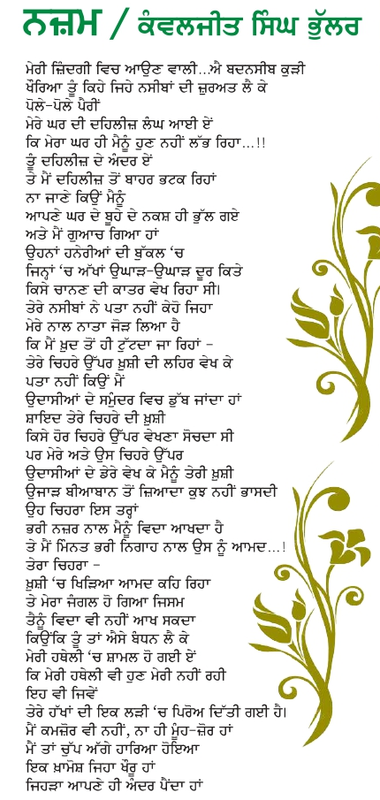 ਨਜ਼ਮ / ਕੰਵਲਜੀਤ ਸਿੰਘ ਭੁੱਲਰ
ਮੇਰੀ ਜ਼ਿੰਦਗੀ ਵਿਚ ਆਉਣ ਵਾਲੀ...ਐ ਬਦਨਸੀਬ ਕੁੜੀ
ਖੌਰਿਆ ਤੂੰ ਕਿਹੋ ਜਿਹੇ ਨਸੀਬਾਂ ਦੀ ਜ਼ੁਰਅਤ ਲੈ ਕੇ
ਪੋਲੇ-ਪੋਲੇ ਪੈਰੀਂ
ਮੇਰੇ ਘਰ ਦੀ ਦਹਿਲੀਜ਼ ਲੰਘ ਆਈ ਏਂ
ਕਿ ਮੇਰਾ ਘਰ ਹੀ ਮੈਨੂੰ ਹੁਣ ਨਹੀਂ ਲੱਭ ਰਿਹਾ...!!
ਤੂੰ ਦਹਿਲੀਜ਼ ਦੇ ਅੰਦਰ ਏਂ
ਤੇ ਮੈਂ ਦਹਿਲੀਜ਼ ਤੋਂ ਬਾਹਰ ਭਟਕ ਰਿਹਾਂ
ਨਾ ਜਾਣੇ ਕਿਉਂ ਮੈਨੂੰ
ਆਪਣੇ ਘਰ ਦੇ ਬੂਹੇ ਦੇ ਨਕਸ਼ ਹੀ ਭੁੱਲ ਗਏ
ਅਤੇ ਮੈਂ ਗੁਆਚ ਗਿਆ ਹਾਂ
ਉਹਨਾਂ ਹਨੇਰੀਆਂ ਦੀ ਬੁੱਕਲ 'ਚ
ਜਿਨ੍ਹਾਂ 'ਚ ਅੱਖਾਂ ਉਘਾੜ-ਉਘਾੜ ਦੂਰ ਕਿਤੇ
ਕਿਸੇ ਚਾਨਣ ਦੀ ਕਾਤਰ ਵੇਖ ਰਿਹਾ ਸੀ।
ਤੇਰੇ ਨਸੀਬਾਂ ਨੇ ਪਤਾ ਨਹੀਂ ਕੇਹੋ ਜਿਹਾ
ਮੇਰੇ ਨਾਲ ਨਾਤਾ ਜੋੜ ਲਿਆ ਹੈ
ਕਿ ਮੈਂ ਖ਼ੁਦ ਤੋਂ ਹੀ ਟੁੱਟਦਾ ਜਾ ਰਿਹਾਂ -
ਤੇਰੇ ਚਿਹਰੇ ਉੱਪਰ ਖ਼ੁਸ਼ੀ ਦੀ ਲਹਿਰ ਵੇਖ ਕੇ
ਪਤਾ ਨਹੀਂ ਕਿਉਂ ਮੈਂ
ਉਦਾਸੀਆਂ ਦੇ ਸਮੁੰਦਰ ਵਿਚ ਡੁੱਬ ਜਾਂਦਾ ਹਾਂ
ਸ਼ਾਇਦ ਤੇਰੇ ਚਿਹਰੇ ਦੀ ਖ਼ੁਸ਼ੀ
ਕਿਸੇ ਹੋਰ ਚਿਹਰੇ ਉੱਪਰ ਵੇਖਣਾ ਸੋਚਦਾ ਸੀ
ਪਰ ਮੇਰੇ ਅਤੇ ਉਸ ਚਿਹਰੇ ਉੱਪਰ
ਉਦਾਸੀਆਂ ਦੇ ਡੇਰੇ ਵੇਖ ਕੇ ਮੈਨੂੰ ਤੇਰੀ ਖ਼ੁਸ਼ੀ
ਉਜਾੜ ਬੀਆਬਾਨ ਤੋਂ ਜ਼ਿਆਦਾ ਕੁਝ ਨਹੀਂ ਭਾਸਦੀ
ਉਹ ਚਿਹਰਾ ਇਸ ਤਰ੍ਹਾਂ
ਭਰੀ ਨਜ਼ਰ ਨਾਲ ਮੈਨੂੰ ਵਿਦਾ ਆਖਦਾ ਹੈ
ਤੇ ਮੈਂ ਮਿਨਤ ਭਰੀ ਨਿਗਾਹ ਨਾਲ ਉਸ ਨੂੰ ਆਮਦ...!
ਤੇਰਾ ਚਿਹਰਾ -
ਖ਼ੁਸ਼ੀ 'ਚ ਖਿੜਿਆ ਆਮਦ ਕਹਿ ਰਿਹਾ
ਤੇ ਮੇਰਾ ਜੰਗਲ ਹੋ ਗਿਆ ਜਿਸਮ
ਤੈਨੂੰ ਵਿਦਾ ਵੀ ਨਹੀਂ ਆਖ ਸਕਦਾ
ਕਿਉਂਕਿ ਤੂੰ ਤਾਂ ਐਸੇ ਬੰਧਨ ਲੈ ਕੇ
ਮੇਰੀ ਹਥੇਲੀ 'ਚ ਸ਼ਾਮਲ ਹੋ ਗਈ ਏਂ
ਕਿ ਮੇਰੀ ਹਥੇਲੀ ਵੀ ਹੁਣ ਮੇਰੀ ਨਹੀਂ ਰਹੀ
ਇਹ ਵੀ ਜਿਵੇਂ
ਤੇਰੇ ਹੱਖਾਂ ਦੀ ਇਕ ਲੜੀ 'ਚ ਪਿਰੋਅ ਦਿੱਤੀ ਗਈ ਹੈ।
ਮੈਂ ਕਮਜ਼ੋਰ ਵੀ ਨਹੀਂ, ਨਾ ਹੀ ਮੂੰਹ-ਜ਼ੋਰ ਹਾਂ
ਮੈਂ ਤਾਂ ਚੁੱਪ ਅੱਗੇ ਹਾਰਿਆ ਹੋਇਆ
ਇਕ ਖ਼ਾਮੋਸ਼ ਜਿਹਾ ਖੌਰੂ ਹਾਂ
ਜਿਹੜਾ ਆਪਣੇ ਹੀ ਅੰਦਰ ਪੈਂਦਾ ਹਾਂ